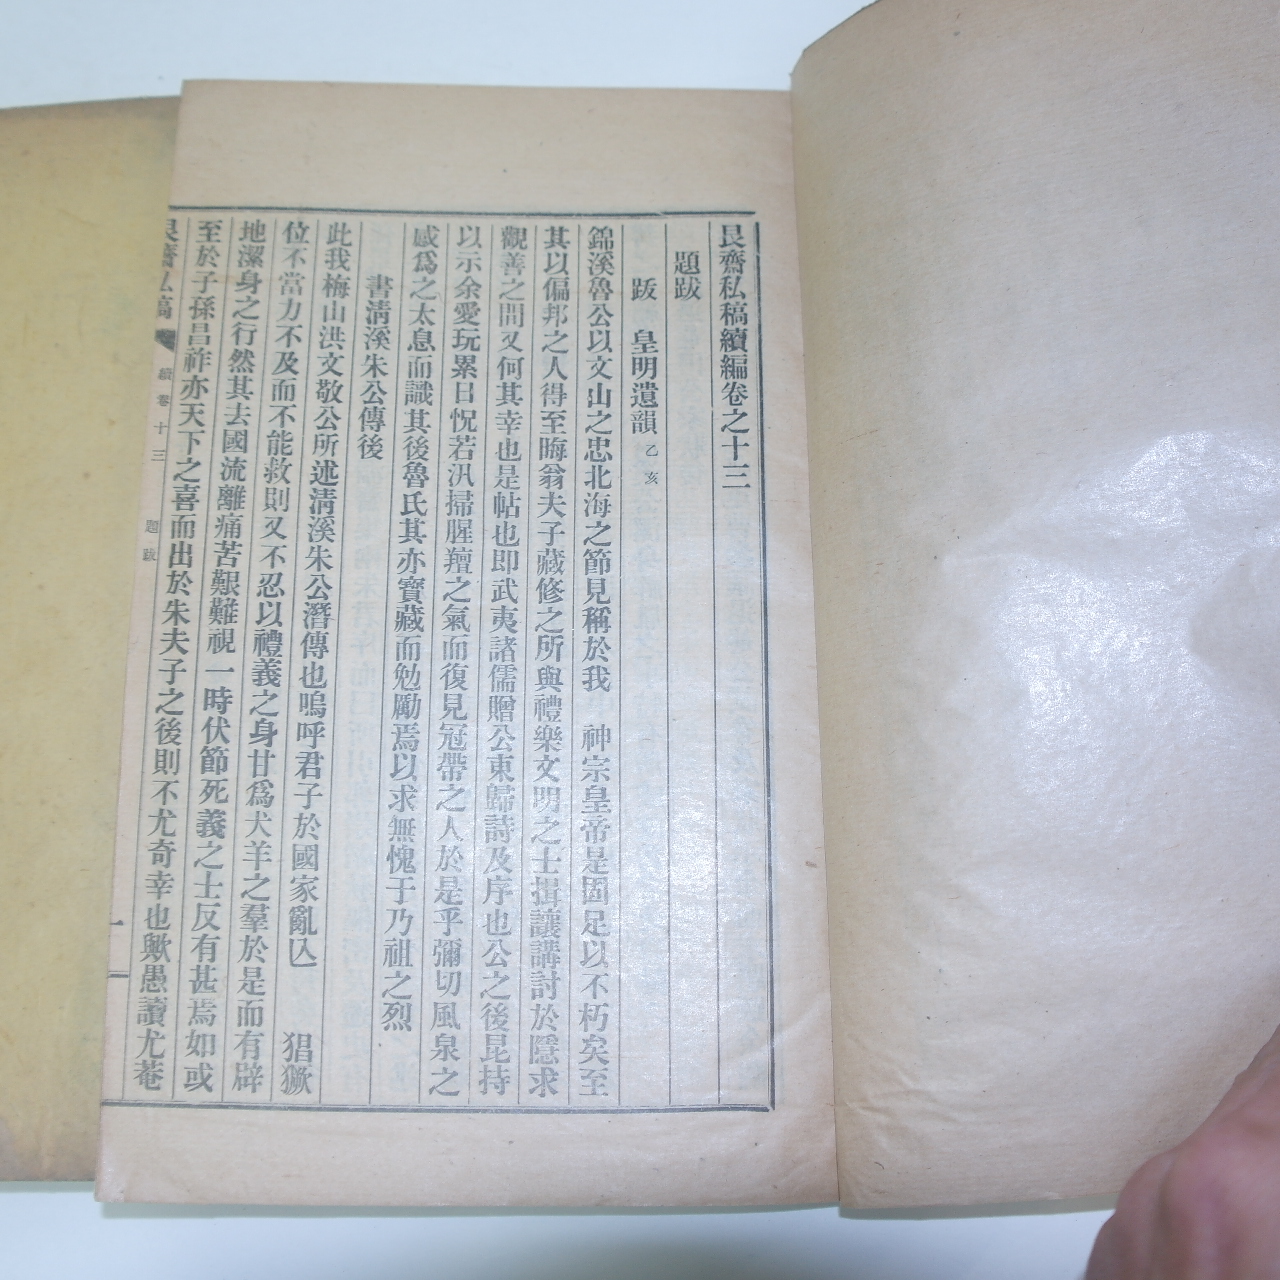 艮齋私稿續編卷之十三
題跋
跋　皇明遺韻乙亥
錦溪魯公以文山之忠北海之節見稱於我　神宗皇帝是固足以不朽矣至
其以偏邦之人得至晦翁夫子藏修之所與禮樂文明之士揖讓講討於隱求
觀善之間又何其幸也是帖也即武夷諸儒贈公東歸詩及序也公之後昆持
以示余愛玩累日怳若汛掃腥羶之氣而復見冠帶之人於是乎彌切風泉之
感爲之太息而識其後魯氏其亦寶藏而勉勵焉以求無愧于乃祖之烈
書淸溪朱公傳後
此我梅山洪文敬公所述淸溪朱公潛傳也嗚呼君子於國家亂亾　猖獗
位不當力不及而不能救則又不忍以禮義之身甘爲犬羊之羣於是而有辟
地潔身之行然其去國流離痛苦艱難視一時伏節死義之士反有甚焉如或
至於子孫昌祚亦天下之喜而出於朱夫子之後則不尤奇幸也歟愚讀尤菴
艮齋私稿　續卷十三　題跋　一